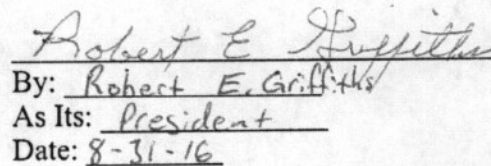 Robert E Griffiths
By: Robert E. Griffiths
As Its: President
Date: 8-31-16